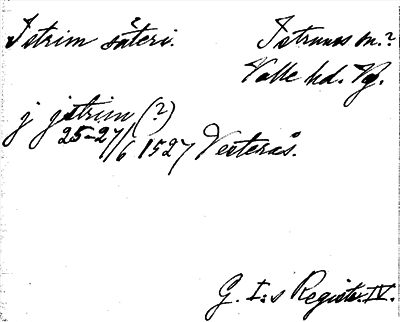 Istrim säteri. Istrums sn.?
Valle hd. Vg.
j jstrim (?)
25-27/6 1527 Vesterås.
G. I:s Registr. IV.